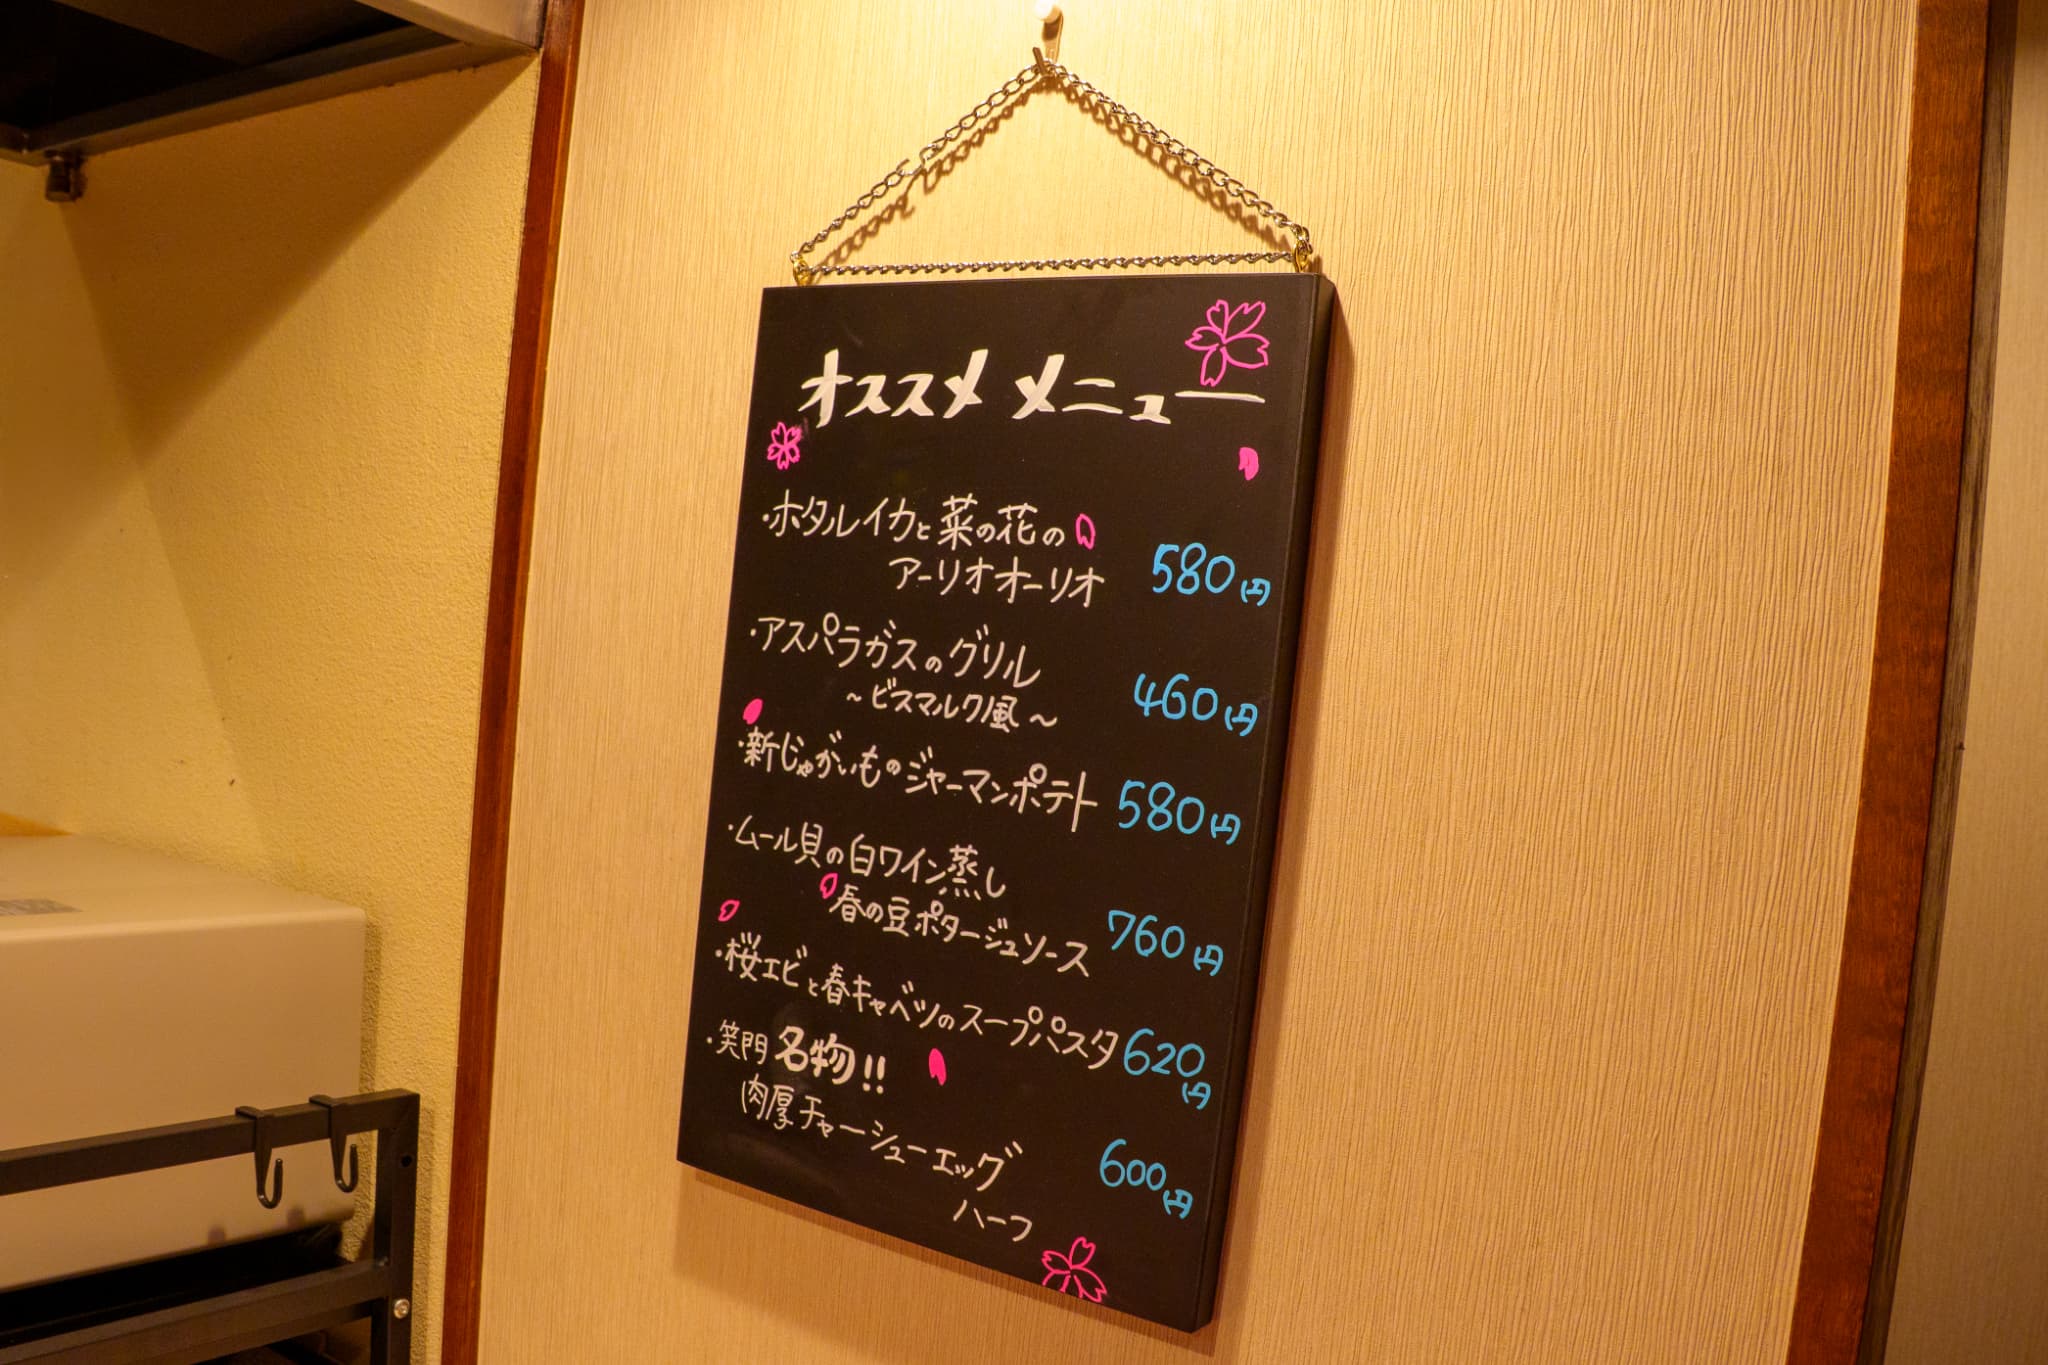 オススメ メニュー
・ホタルイカと菜の花の
アーリオオーリオ 580円
・アスパラガスのグリル
~ビスマルク風~ 460円
・新じゃがいものジャーマンポテト 580円
・ムール貝の白ワイン蒸し
春の豆ポタージュソース 760円
・桜エビと春キャベツのスープパスタ 620円
・笑門 名物!!
肉厚チャーシューエッグ 600円
ハーフ